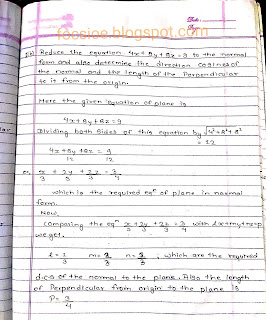 focsioe.blogspot.com
Date :
Page :
Reduce the equation 4x + 8y + 8z = 9 to the normal
form and also determine the direction cosines of
the normal and the length of the perpendicular
to it from the origin.
Here the given equation of plane is
4x + 8y + 8z = 9
Dividing both sides of this equation by √4²+8²+8²
= 12
4x + 8y + 8z = 9
12 12
or, x + 2y + 2z = 3
3 3 3 4
which is the required eqⁿ of plane in normal
form.
Now,
Comparing the eqⁿ x + 2y + 2z = 3 with lx+my+nz=p
3 3 3 4
we get.
l = 1 m = 2 n = 2 , which are the required
3 3 3
d.c.s of the normal to the plane. Also the length
of Perpendicular from origin to the plane is
P = 3
4